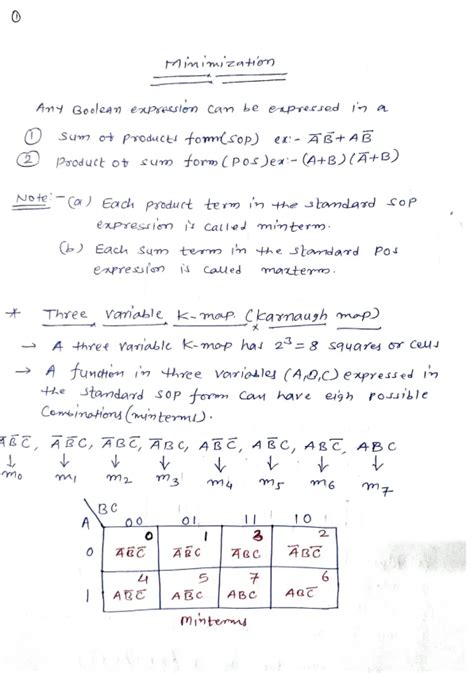 ①
Minimization
Any Boolean expression can be expressed in a
① Sum of Products form (SOP) ex:- A̅B̅ + AB̅
② Product of sum form (POS) ex:- (A+B) (A̅+B)
Note:- (a) Each product term in the standard SOP
expression is called minterm.
(b) Each Sum term in the standard POS
expression is called maxterm.
* Three Variable K-map (Karnaugh map)
→ A three variable K-map has 2³ = 8 squares or cells
→ A function in three variables (A,B,C) expressed in
the standard SOP form can have eigh possible
Combinations (minterms).
A̅B̅C̅, A̅B̅C, A̅BC̅, A̅BC, AB̅C̅, AB̅C, ABC̅, ABC
↓ ↓ ↓ ↓ ↓ ↓ ↓ ↓
m₀ m₁ m₂ m₃ m₄ m₅ m₆ m₇
BC
A 00 01 11 10
0 1 3 2
0 A̅B̅C̅ A̅B̅C A̅BC A̅BC̅
4 5 7 6
1 AB̅C̅ AB̅C ABC ABC̅
Minterms